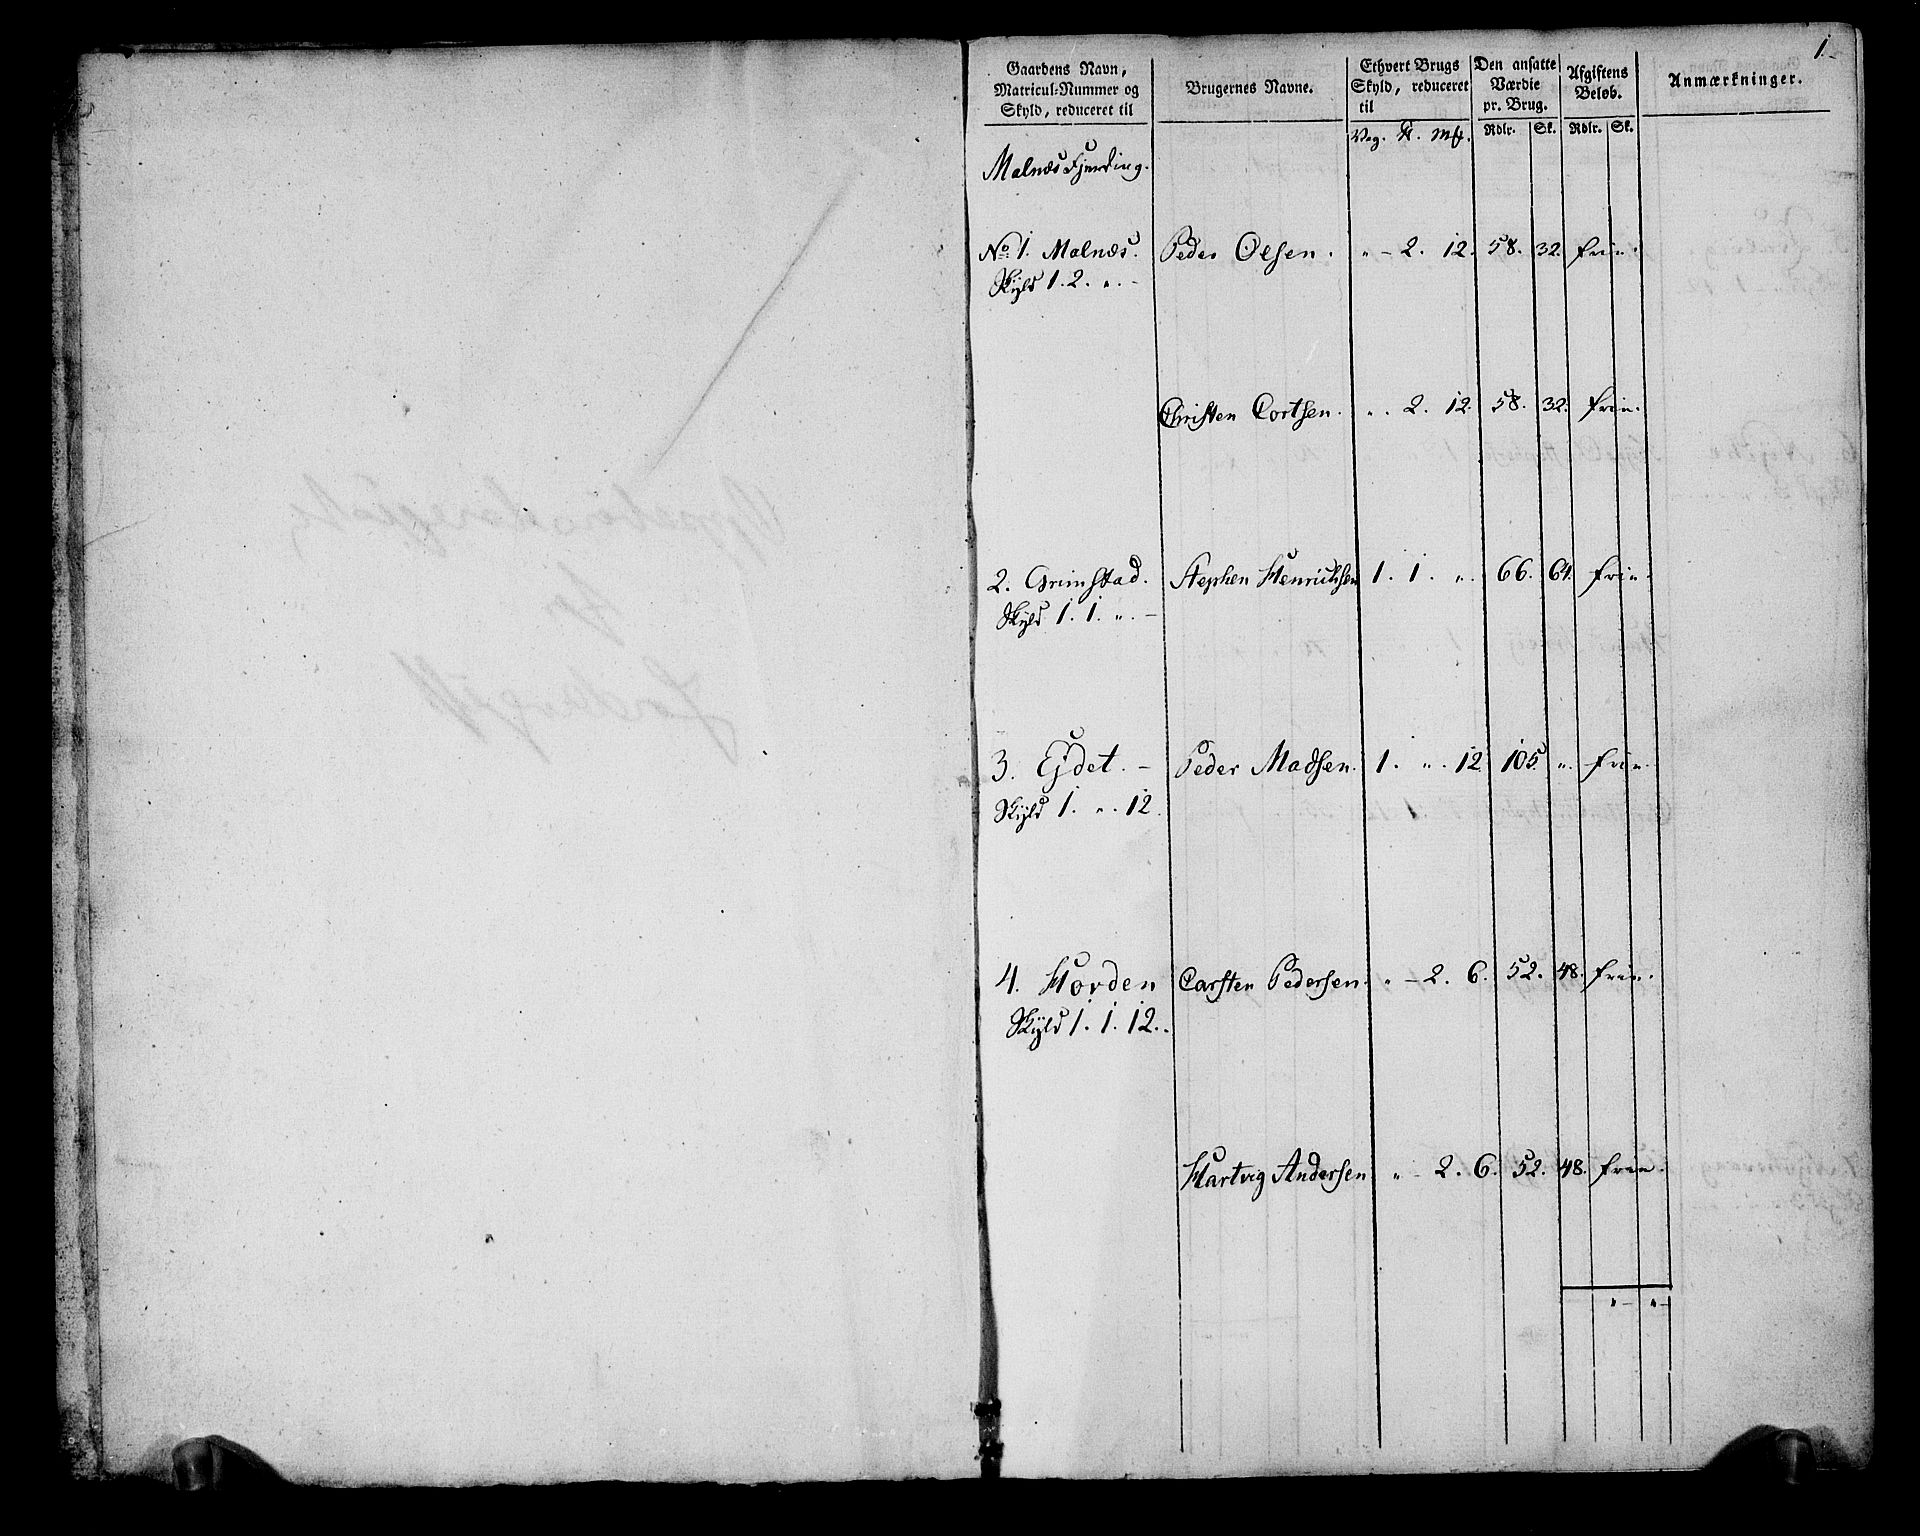 1.
Gaardens Navn, Matricul-Nummer og Skyld, reduceret til
Brugernes Navne.
Ethvert Brugs Skyld, reduceret til
Den ansatte Værdie pr. Brug.
Afgiftens Beløb.
Anmærkninger.
Vog. Mk.
Rdlr. Sk. Rdlr. Sk.
Malnæs Fjerding.
No 1. Malnæs. Peder Olsen. " - 2. 12. 58. 32. frie.
Skyld 1. 2. ". -
Christen Cortsen. ". 2. 12. 58. 32. frie.
2. Grimstad. Stephen Henrichsen 1. 1. ". 66. 64. frie.
Skyld 1. 1. ". -
3. Ejdet. - Peder Madsen. 1. ". 12 105 ". frie.
Skyld 1. ". 12.
4. Hovden Carsten Pedersen. " - 2. 6. 52. 48. frie.
Skyld 1. 1. 12..
Hartvig Andersen " - 2. 6. 52. 48. frie.
" - " -